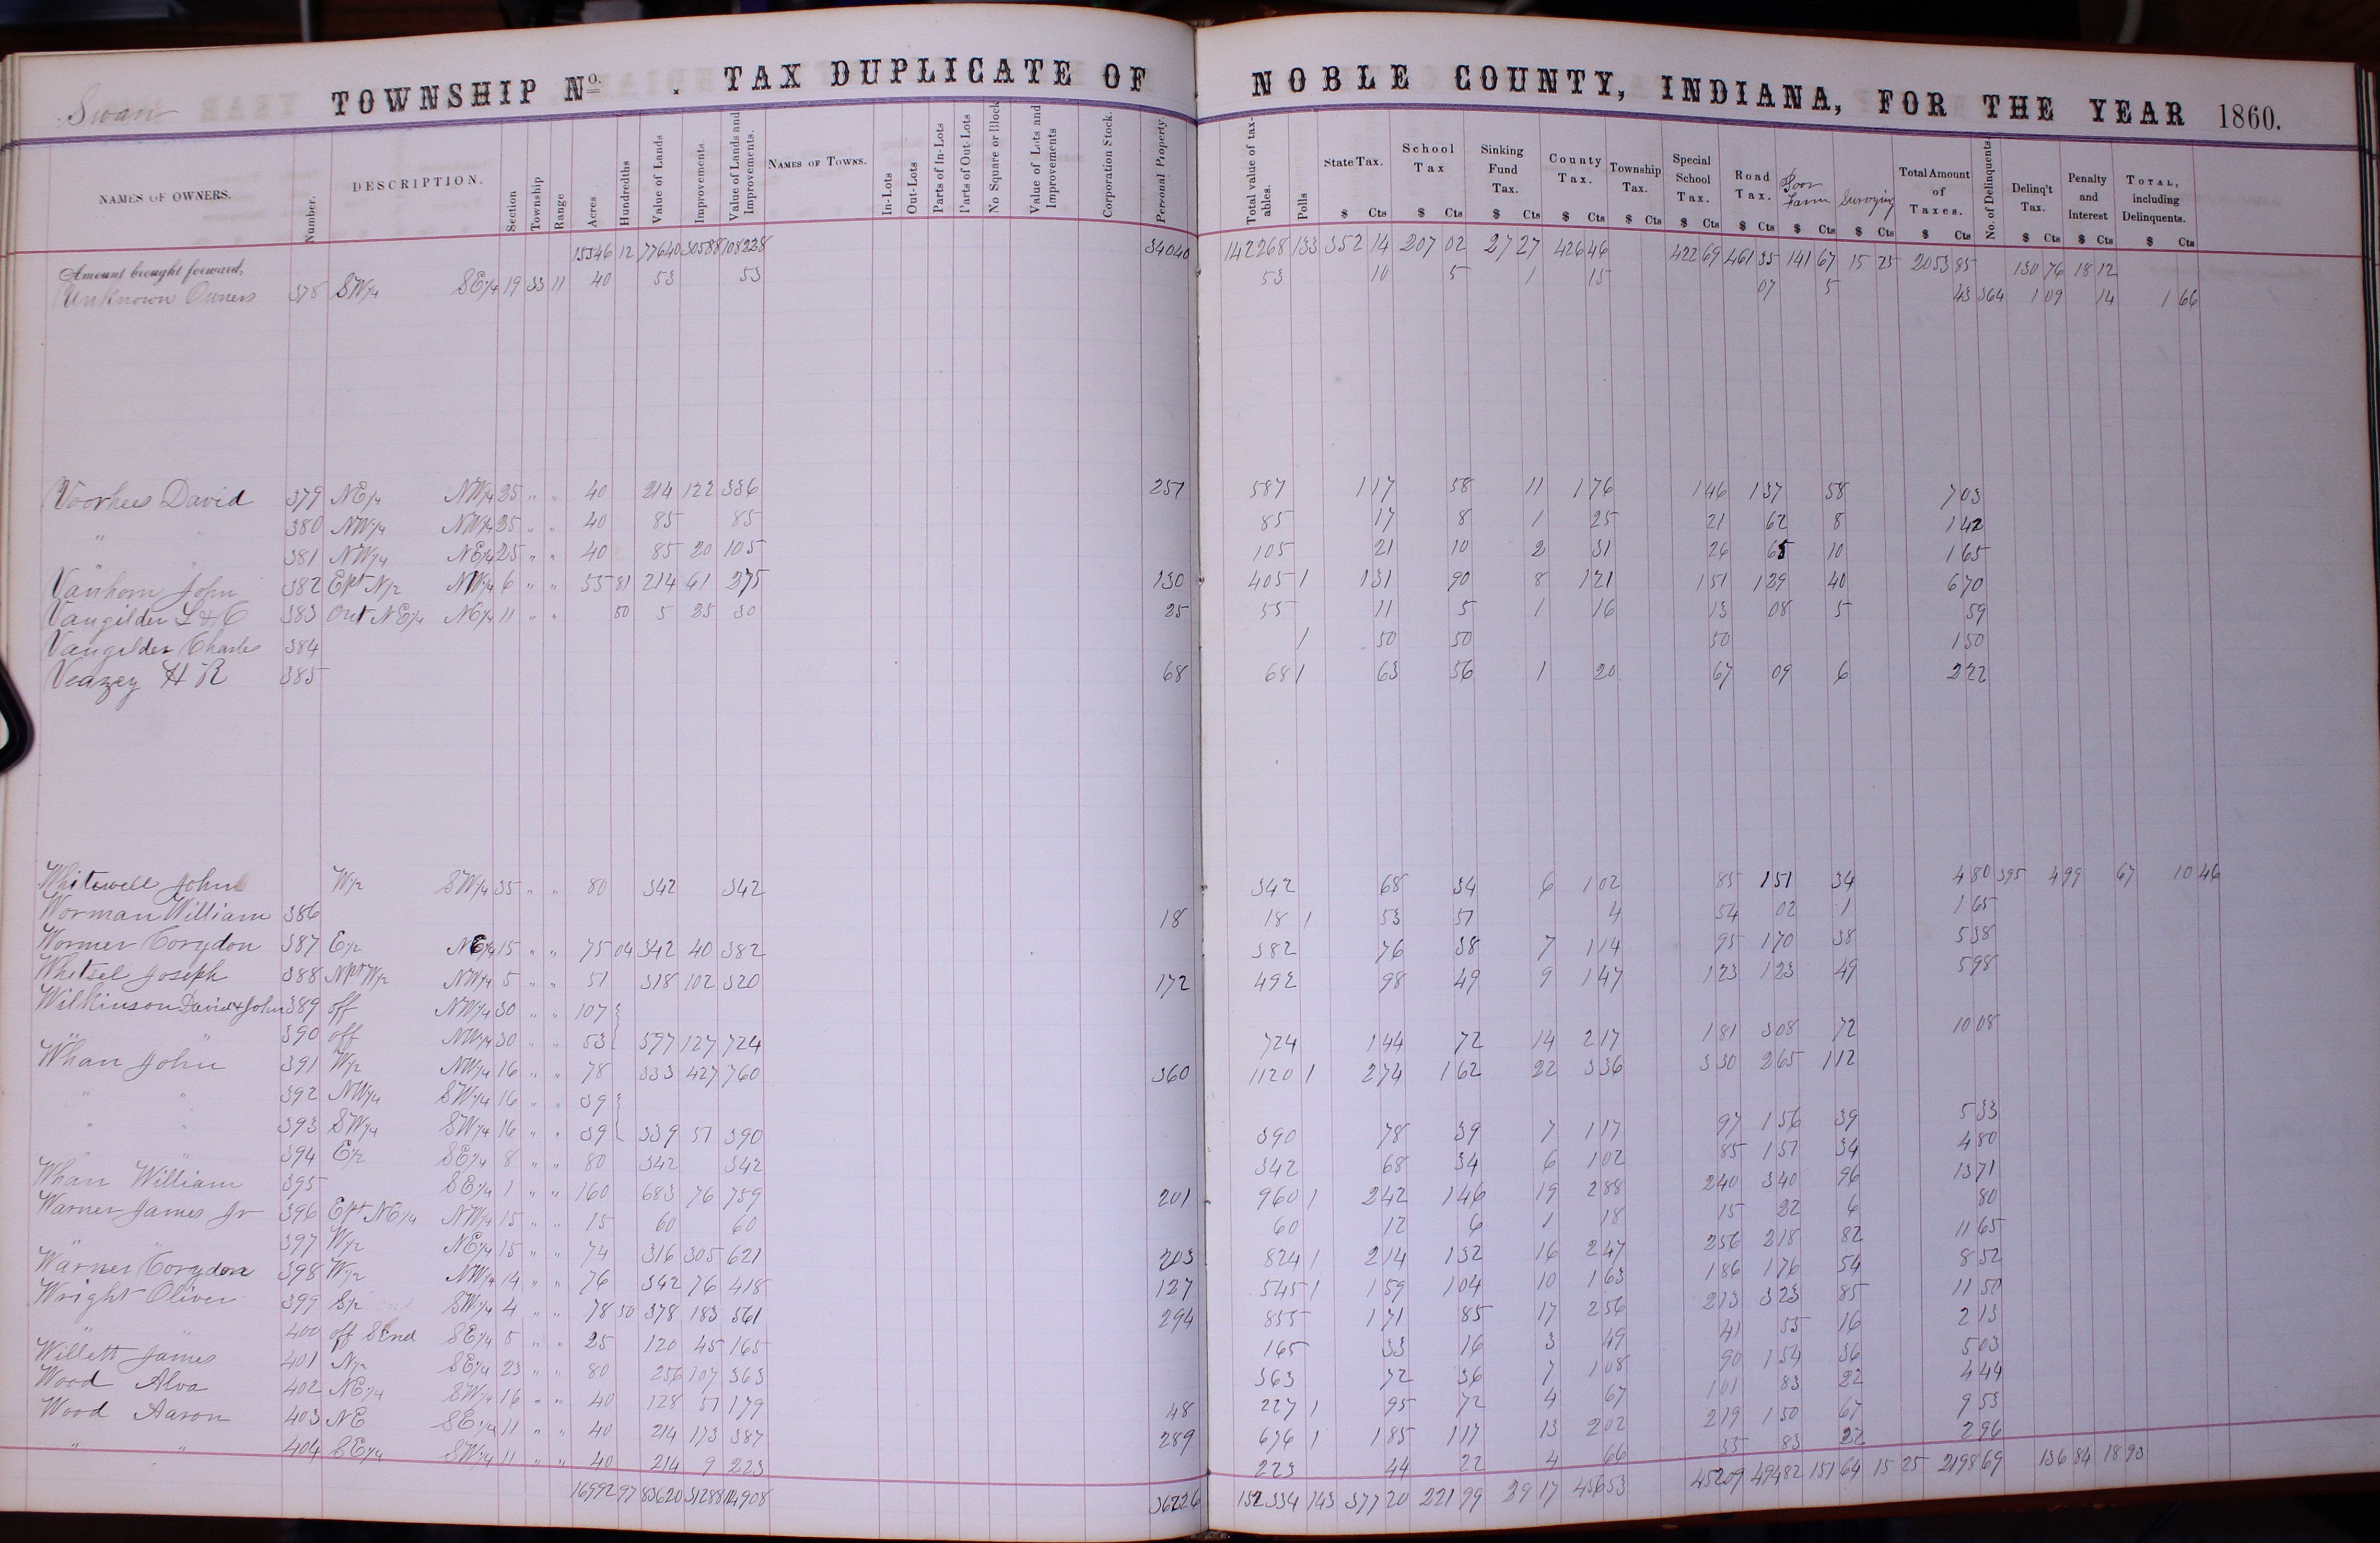 Swan TOWNSHIP No. . TAX DUPLICATE OF NOBLE COUNTY, INDIANA, FOR THE YEAR 1860.
NAMES OF OWNERS. Number. DESCRIPTION. Section Township Range Acres Hundredths Value of Lands Improvements. Value of Lands and Improvements. NAMES OF TOWNS. In-Lots Out-Lots Parts of In-Lots Parts of Out-Lots No Square or Block Value of Lots and Improvements Corporation Stock. Personal Property. Total value of taxables. Polls State Tax. School Tax Sinking Fund Tax. County Tax. Township Tax. Special School Tax. Road Tax. Poor Farm Surveying Total Amount of Taxes. No. of Delinquents Delinq't Tax. Penalty and Interest TOTAL, including Delinquents.
$ Cts $ Cts $ Cts $ Cts $ Cts $ Cts $ Cts $ Cts $ Cts $ Cts $ Cts $ Cts $ Cts
Amount brought forward, 15346 12 77640 30588 108238 34040 142268 133 352 14 207 02 27 27 426 46 422 69 461 35 141 67 15 25 2053 85 130 76 18 12
Unknown Owners 378 SW1/4 SE1/4 19 33 11 40 53 53 53 10 5 1 15 07 5 43 364 1 09 14 1 66
Voorhees David 379 NE1/4 NW1/4 25 " " 40 214 122 336 251 587 1 17 58 11 1 76 1 46 1 37 58 7 03
" " 380 NW1/4 NW1/4 25 " " 40 85 85 85 17 8 1 25 21 62 8 1 42
" " 381 NW1/4 NE1/4 25 " " 40 85 20 105 105 21 10 2 31 26 65 10 1 65
Vanhorn John 382 Ept N1/2 NW1/4 6 " " 55 81 214 61 275 130 405 1 1 31 90 8 1 21 1 51 1 29 40 6 70
Vangilder L & C 383 Out NE1/4 NE1/4 11 " " 50 5 25 30 25 55 11 5 1 16 13 08 5 59
Vangilder Charles 384 1 50 50 50 1 50
Veazey H R 385 68 68 1 63 56 1 20 67 09 6 2 22
Whitewell John W1/2 SW1/4 35 " " 80 342 342 342 68 34 6 1 02 85 1 51 34 4 80 395 4 99 67 10 46
Worman William 386 18 18 1 53 51 4 54 02 1 1 65
Wormer Corydon 387 E1/2 NE1/4 15 " " 75 04 342 40 382 382 76 38 7 1 14 95 1 70 38 5 38
Whitsel Joseph 388 Npt W1/2 NW1/4 5 " " 51 318 102 320 172 492 98 49 9 1 47 1 23 1 23 49 5 98
Wilkinson David & John 389 off NW1/4 30 " " 107
" " 390 off NW1/4 30 " " 53 597 127 724 724 1 44 72 14 2 17 1 81 3 08 72 10 08
Whan John 391 W1/2 NW1/4 16 " " 78 333 427 760 360 1120 1 2 74 1 62 22 3 36 3 30 2 65 1 12
" " 392 NW1/4 SW1/4 16 " " 39
" " 393 SW1/4 SW1/4 16 " " 39 339 51 390 390 78 39 7 1 17 97 1 56 39 5 33
" " 394 E1/2 SE1/4 8 " " 80 342 342 342 68 34 6 1 02 85 1 51 34 4 80
Whan William 395 SE1/4 1 " " 160 683 76 759 201 960 1 2 42 1 46 19 2 88 2 40 3 40 96 13 71
Warner James Jr 396 Ept NE1/4 NW1/4 15 " " 15 60 60 60 12 6 1 18 15 22 6 80
" " 397 W1/2 NE1/4 15 " " 74 316 305 621 203 824 1 2 14 1 32 16 2 47 2 56 2 18 82 11 65
Warner Corydon 398 W1/2 NW1/4 14 " " 76 342 76 418 127 545 1 1 59 1 04 10 1 63 1 86 1 76 54 8 52
Wright Oliver 399 S1/2 SW1/4 4 " " 78 50 378 183 561 294 855 1 71 85 17 2 56 2 13 3 23 85 11 50
" " 400 off S End SE1/4 5 " " 25 120 45 165 165 33 16 3 49 41 55 16 2 13
Willett James 401 N1/2 SE1/4 23 " " 80 256 107 363 363 72 36 7 1 08 90 1 54 36 5 03
Wood Alva 402 NE1/4 SW1/4 16 " " 40 128 51 179 48 227 1 95 72 4 67 1 01 83 22 4 44
Wood Aaron 403 NE SE1/4 11 " " 40 214 173 387 289 676 1 1 85 1 17 13 2 02 2 19 1 50 67 9 53
" " 404 SE1/4 SW1/4 11 " " 40 214 9 223 223 44 22 4 66 55 83 22 2 96
16992 97 83620 31288 114908 36226 152334 143 377 20 221 99 29 17 456 53 452 09 494 82 151 64 15 25 2198 69 136 84 18 93